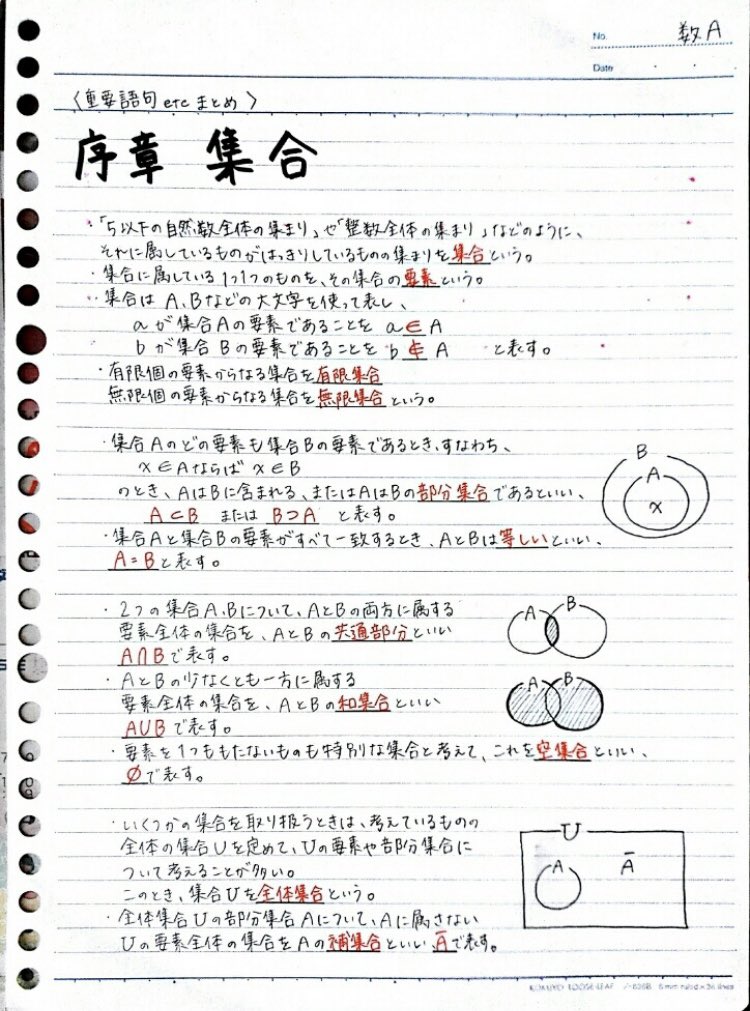 No. 数A
Date
〈重要語句 etc まとめ〉
序章 集合
・「5以下の自然数全体の集まり」や「整数全体の集まり」などのように、
それに属しているものがはっきりしているものの集まりを集合という。
・集合に属している1つ1つのものを、その集合の要素という。
・集合は A、Bなどの大文字を使って表し、
aが集合Aの要素であることを a∈A
bが集合Bの要素であることを b∉A と表す。
・有限個の要素からなる集合を有限集合
無限個の要素からなる集合を無限集合という。
・集合Aのどの要素も集合Bの要素であるとき、すなわち、
x∈Aならば x∈B
のとき、AはBに含まれる、またはAはBの部分集合であるといい、
A⊂B または B⊃A と表す。
B
A
x
・集合Aと集合Bの要素がすべて一致するとき、AとBは等しいといい、
A=Bと表す。
・2つの集合A、Bについて、AとBの両方に属する
要素全体の集合を、AとBの共通部分といい
A∩Bで表す。
A B
・AとBの少なくとも一方に属する
要素全体の集合を、AとBの和集合といい
A∪Bで表す。
A B
・要素を1つももたないものも特別な集合と考えて、これを空集合といい、
∅で表す。
・いくつかの集合を取り扱うときは、考えているものの
全体の集合Uを定めて、Uの要素や部分集合に
ついて考えることが多い。
このとき、集合Uを全体集合という。
・全体集合Uの部分集合Aについて、Aに属さない
Uの要素全体の集合をAの補集合といい、A̅で表す。
U
A A̅
KOKUYO LOOSE-LEAF